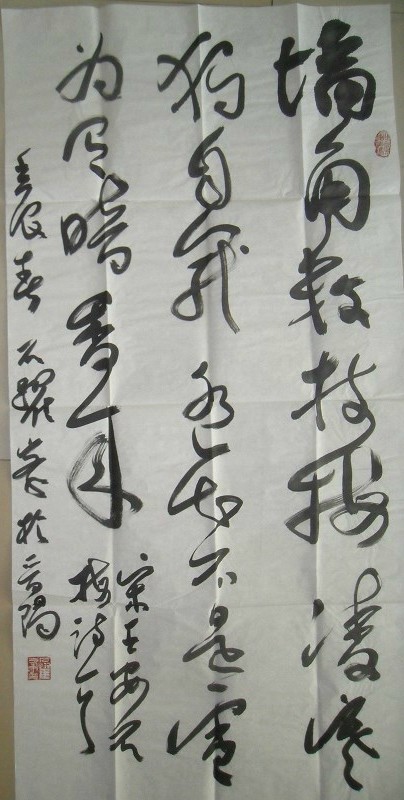 墙角数枝梅凌寒
独自开遥知不是雪
为有暗香来
宋王安石
梅诗一首
壬辰春石耀於晋阳